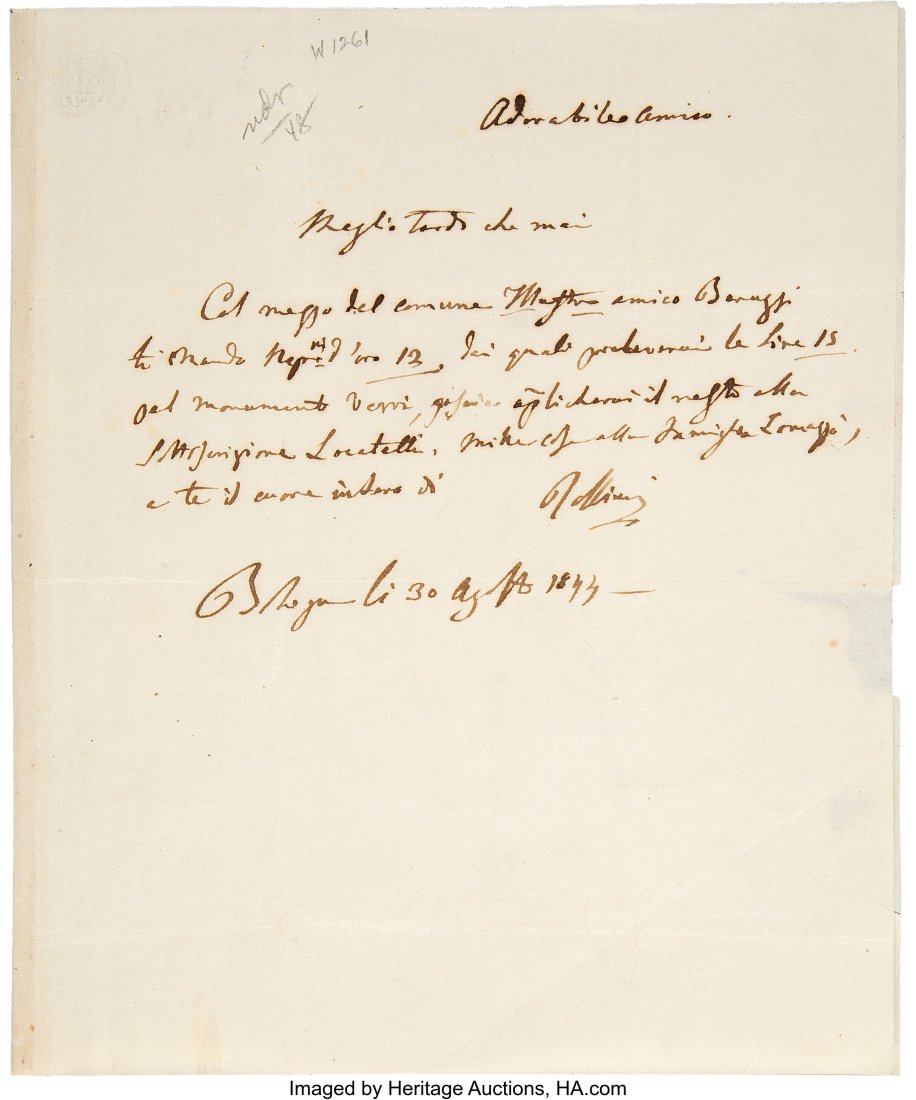 W 1261
48
Adorabile Amico.
Meglio tardi che mai
Col mezzo del comune Maestro amico Baruzzi
ti mando Nap.ni d'oro 12, dai quali preleverai le Lire 15
pel monumento Verri, poscia applicherai il resto alla
Sottoscrizione Locatelli, mille cose alla Famiglia
e te il cuore intero di Rossini
Bologna li 30 Agosto 1844
Imaged by Heritage Auctions, HA.com